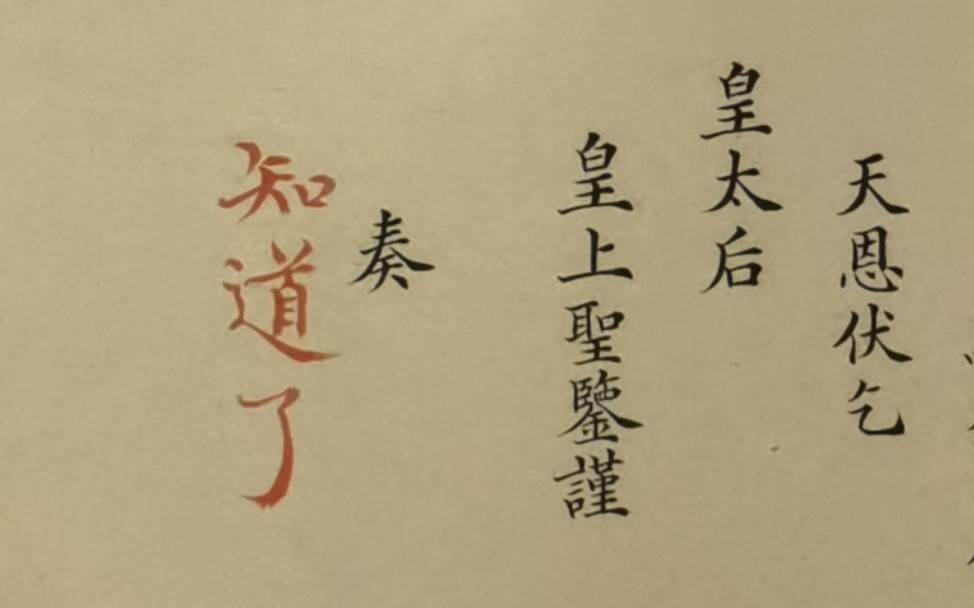 天恩伏乞
皇太后
皇上聖鑒謹
奏
知道了